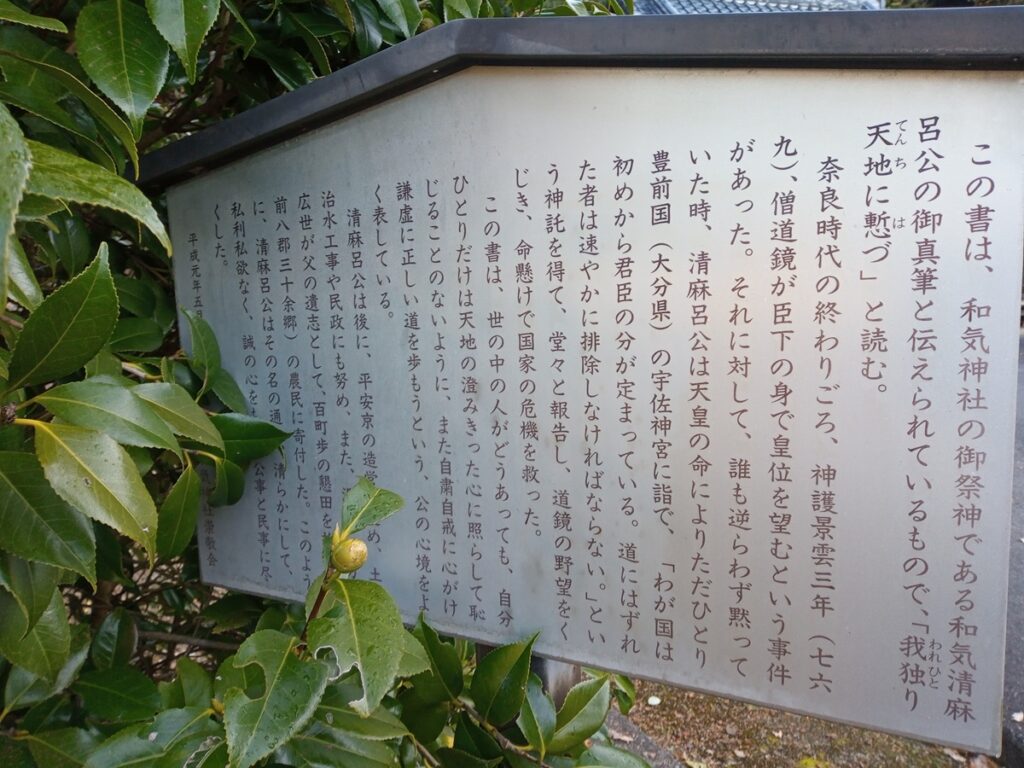 この書は、和気神社の御祭神である和気清麻
呂公の御真筆と伝えられているもので、「我独り
われひと
天地に慙づ」と読む。
てんち は
奈良時代の終わりごろ、神護景雲三年（七六
九）、僧道鏡が臣下の身で皇位を望むという事件
があった。それに対して、誰も逆らわず黙って
いた時、清麻呂公は天皇の命によりただひとり
豊前国（大分県）の宇佐神宮に詣で、「わが国は
初めから君臣の分が定まっている。道にはずれ
た者は速やかに排除しなければならない。」とい
う神託を得て、堂々と報告し、道鏡の野望をく
じき、命懸けで国家の危機を救った。
この書は、世の中の人がどうあっても、自分
ひとりだけは天地の澄みきった心に照らして恥
じることのないように、また自粛自戒に心がけ
謙虚に正しい道を歩もうという、公の心境をよ
く表している。
清麻呂公は後に、平安京の造営 め、土
治水工事や民政にも努め、また、
広世が父の遺志として、百町歩の懇田を
前八郡三十余郷）の農民に寄付した。このよう
に、清麻呂公はその名の通 清らかにして、
私利私欲なく、誠の心を 公事と民事に尽
くした。
平成元年五月 崇敬会